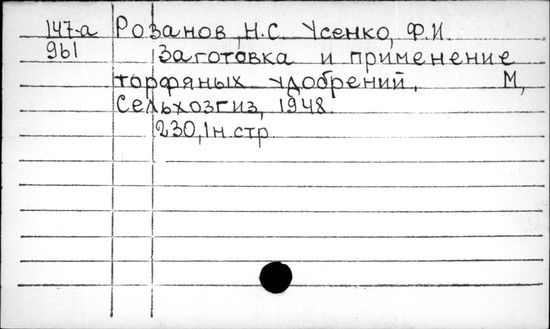 147-а Розанов, Н.С. Усенко, Ф.И.
961 Заготовка и применение
торфяных удобрений. М,
Сельхозгиз, 1948.
230,1н.стр.